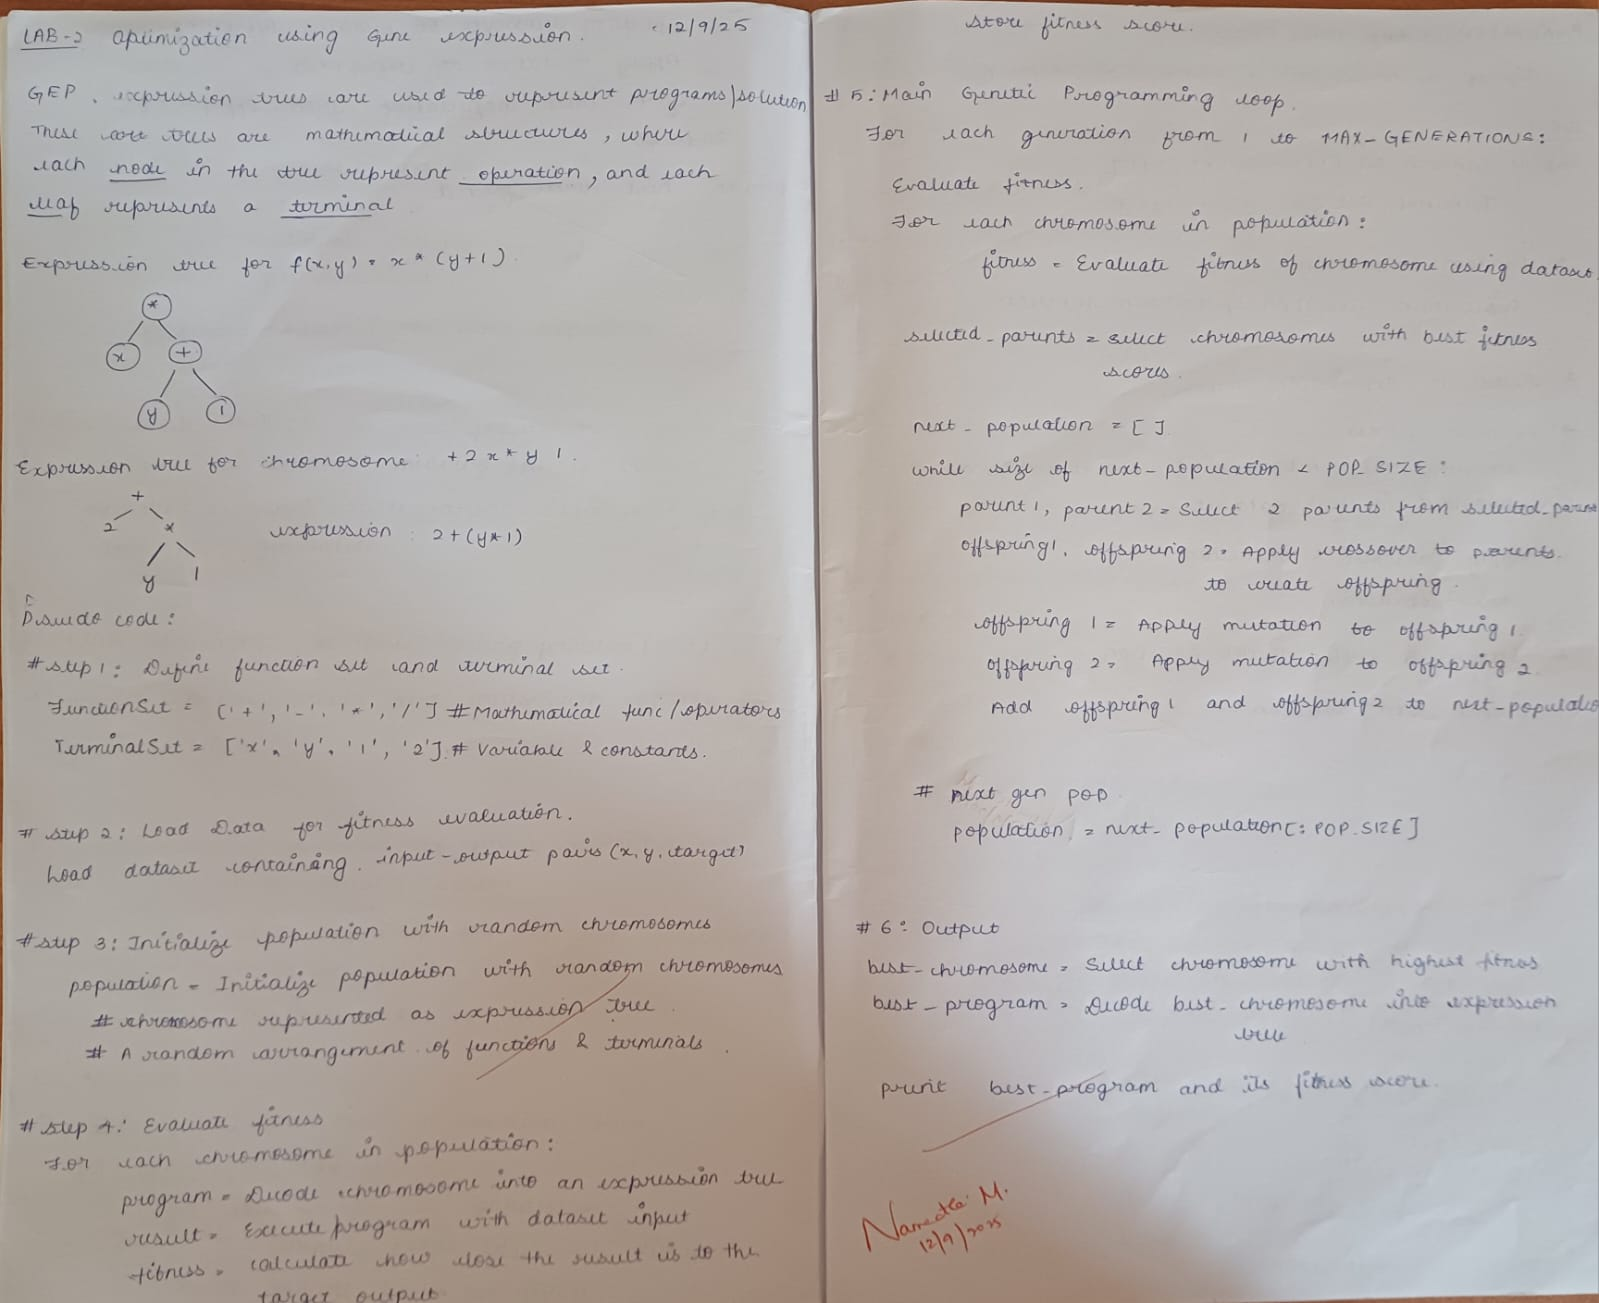 LAB-2 Optimization using Gene expression. 12/9/25
GEP, expression trees are used to represent programs/solution
These trees are mathematical structures, where
each node in the tree represent operation, and each
leaf represents a terminal
Expression tree for f(x,y) = x * (y+1)
*
x +
y 1
Expression tree for chromosome: +2 x * y 1.
+
2 *
y 1
expression: 2+(y*1)
Psuedo code:
# step 1: Define function set and terminal set.
FunctionSet = ['+', '-', '*', '/'] # Mathematical func/operators
TerminalSet = ['x', 'y', '1', '2'] # Variable & constants.
# step 2: Load Data for fitness evaluation.
Load dataset containing input-output pairs (x, y, target)
# step 3: Initialize population with random chromosomes
population = Initialize population with random chromosomes
# chromosome represented as expression tree.
# A random arrangement of functions & terminals.
# step 4: Evaluate fitness
For each chromosome in population:
program = Decode chromosome into an expression tree
result = Execute program with dataset input
fitness = calculate how close the result is to the
target output
store fitness score.
# 5: Main Genetic Programming loop.
For each generation from 1 to MAX-GENERATIONS:
Evaluate fitness.
For each chromosome in population:
fitness = Evaluate fitness of chromosome using dataset
selected_parents = select chromosomes with best fitness
scores.
next_population = []
while size of next-population < POP_SIZE:
parent 1, parent 2 = Select 2 parents from selected_paren
offspring1, offspring 2 = Apply crossover to parents.
to create offspring.
offspring 1 = Apply mutation to offspring 1
offspring 2 = Apply mutation to offspring 2
Add offspring 1 and offspring 2 to next-populatio
# next gen pop
population = next-population[: POP_SIZE]
# 6: Output
best-chromosome = Select chromosome with highest fitness
best-program = Decode best-chromosome into expression
tree
print best-program and its fitness score.
M.
12/9/2025